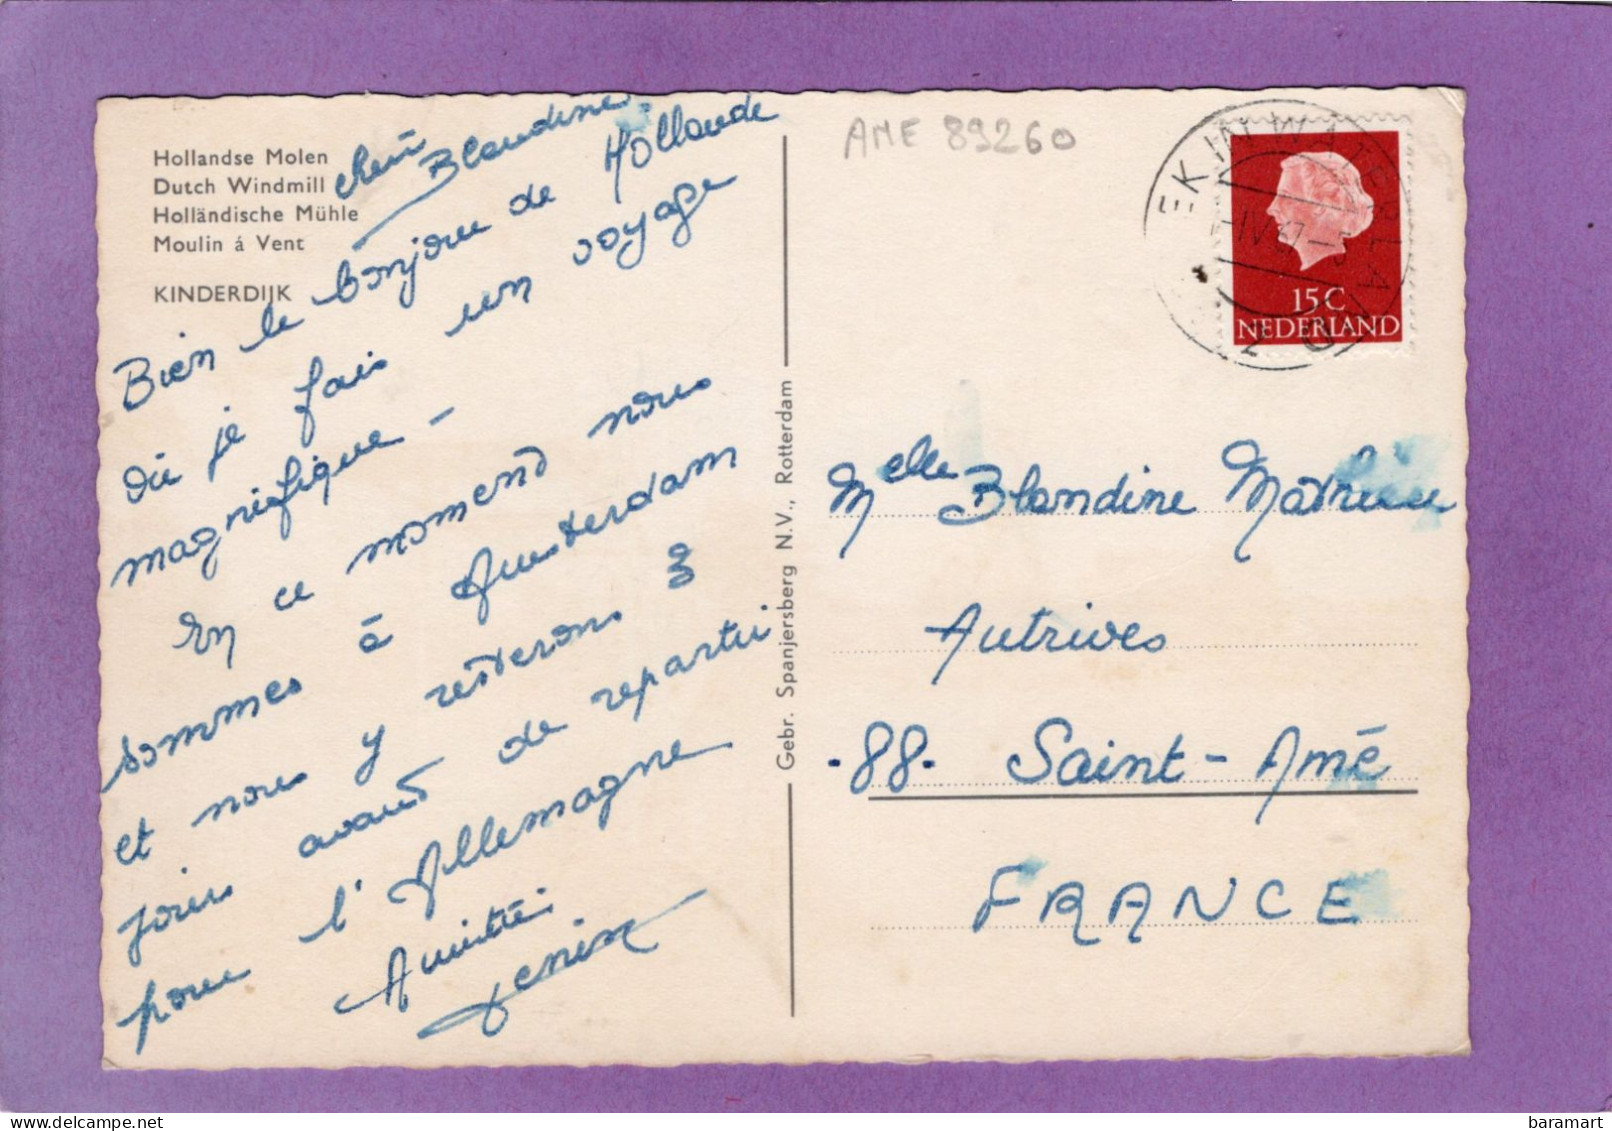 Hollandse Molen
Dutch Windmill
Holländische Mühle
Moulin á Vent
KINDERDIJK
Blandine
Bien le bonjour de Hollande
où je fais un voyage
magnifique -
En ce moment nous
sommes à Amsterdam
et nous y resterons 3
jours avant de repartir
pour l'Allemagne
Amitiés
Gebr. Spanjersberg N.V., Rotterdam
AME 89260
BROEK IN WATERLAND
15 C
NEDERLAND
Melle Blandine Mathieu
Autrives
.88. Saint-Amé
FRANCE
baramart